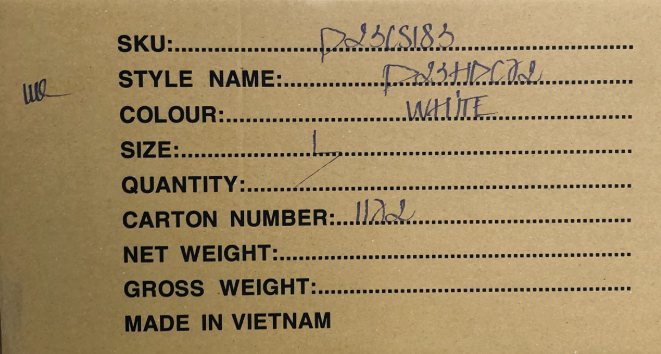 SKU: P23CS183
STYLE NAME: P23HDC22
COLOUR: WHITE
SIZE: L
QUANTITY:
CARTON NUMBER: 1122
NET WEIGHT:
GROSS WEIGHT:
MADE IN VIETNAM